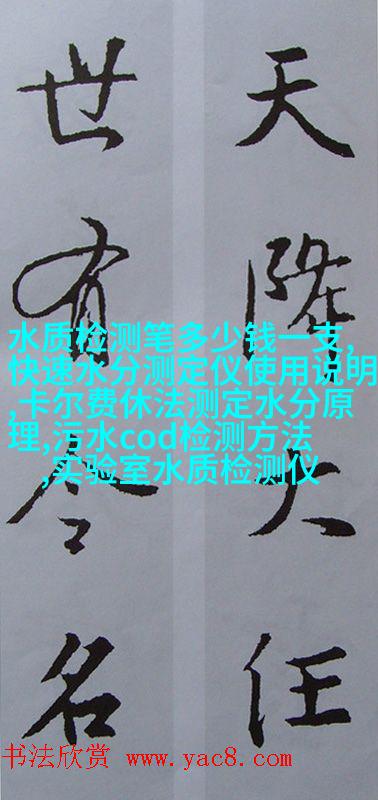 天降大任
世有令名
水质检测笔多少钱一支,
快速水分测定仪使用说明
,卡尔费休法测定水分原
理,污水cod检测方法
,实验室水质检测仪
书法欣赏 www.yac8.com